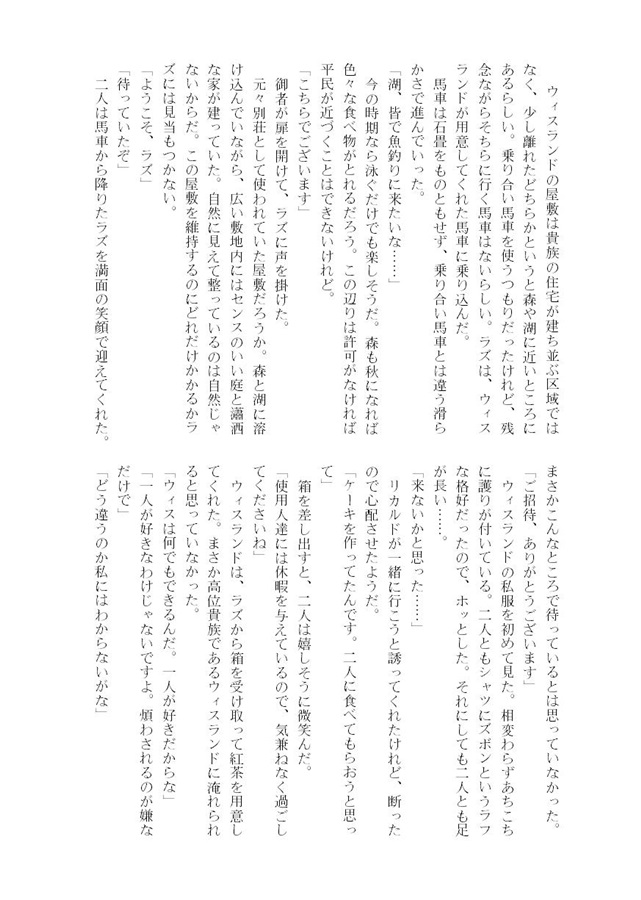 ウィスランドの屋敷は貴族の住宅が建ち並ぶ区域では
なく、少し離れたどちらかというと森や湖に近いところに
あるらしい。乗り合い馬車を使うつもりだったけれど、残
念ながらそちらに行く馬車はないらしい。ラズは、ウィス
ランドが用意してくれた馬車に乗り込んだ。
馬車は石畳をものともせず、乗り合い馬車とは違う滑ら
かさで進んでいった。
「湖、皆で魚釣りに来たいな……」
今の時期なら泳ぐだけでも楽しそうだ。森も秋になれば
色々な食べ物がとれるだろう。この辺りは許可がなければ
平民が近づくことはできないけれど。
「こちらでございます」
御者が扉を開けて、ラズに声を掛けた。
元々別荘として使われていた屋敷だろうか。森と湖に溶
け込んでいながら、広い敷地内にはセンスのいい庭と瀟洒
な家が建っていた。自然に見えて整っているのは自然じゃ
ないからだ。この屋敷を維持するのにどれだけかかるかラ
ズには見当もつかない。
「ようこそ、ラズ」
「待っていたぞ」
二人は馬車から降りたラズを満面の笑顔で迎えてくれた。
まさかこんなところで待っているとは思っていなかった。
「ご招待、ありがとうございます」
ウィスランドの私服を初めて見た。相変わらずあちこち
に護りが付いている。二人ともシャツにズボンというラフ
な格好だったので、ホッとした。それにしても二人とも足
が長い……。
「来ないかと思った……」
リカルドが一緒に行こうと誘ってくれたけれど、断った
ので心配させたようだ。
「ケーキを作ってたんです。二人に食べてもらおうと思っ
て」
箱を差し出すと、二人は嬉しそうに微笑んだ。
「使用人達には休暇を与えているので、気兼ねなく過ごし
てくださいね」
ウィスランドは、ラズから箱を受け取って紅茶を用意し
てくれた。まさか高位貴族であるウィスランドに淹れられ
ると思っていなかった。
「ウィスは何でもできるんだ。一人が好きだからな」
「一人が好きなわけじゃないですよ。煩わされるのが嫌な
だけで」
「どう違うのか私にはわからないがな」